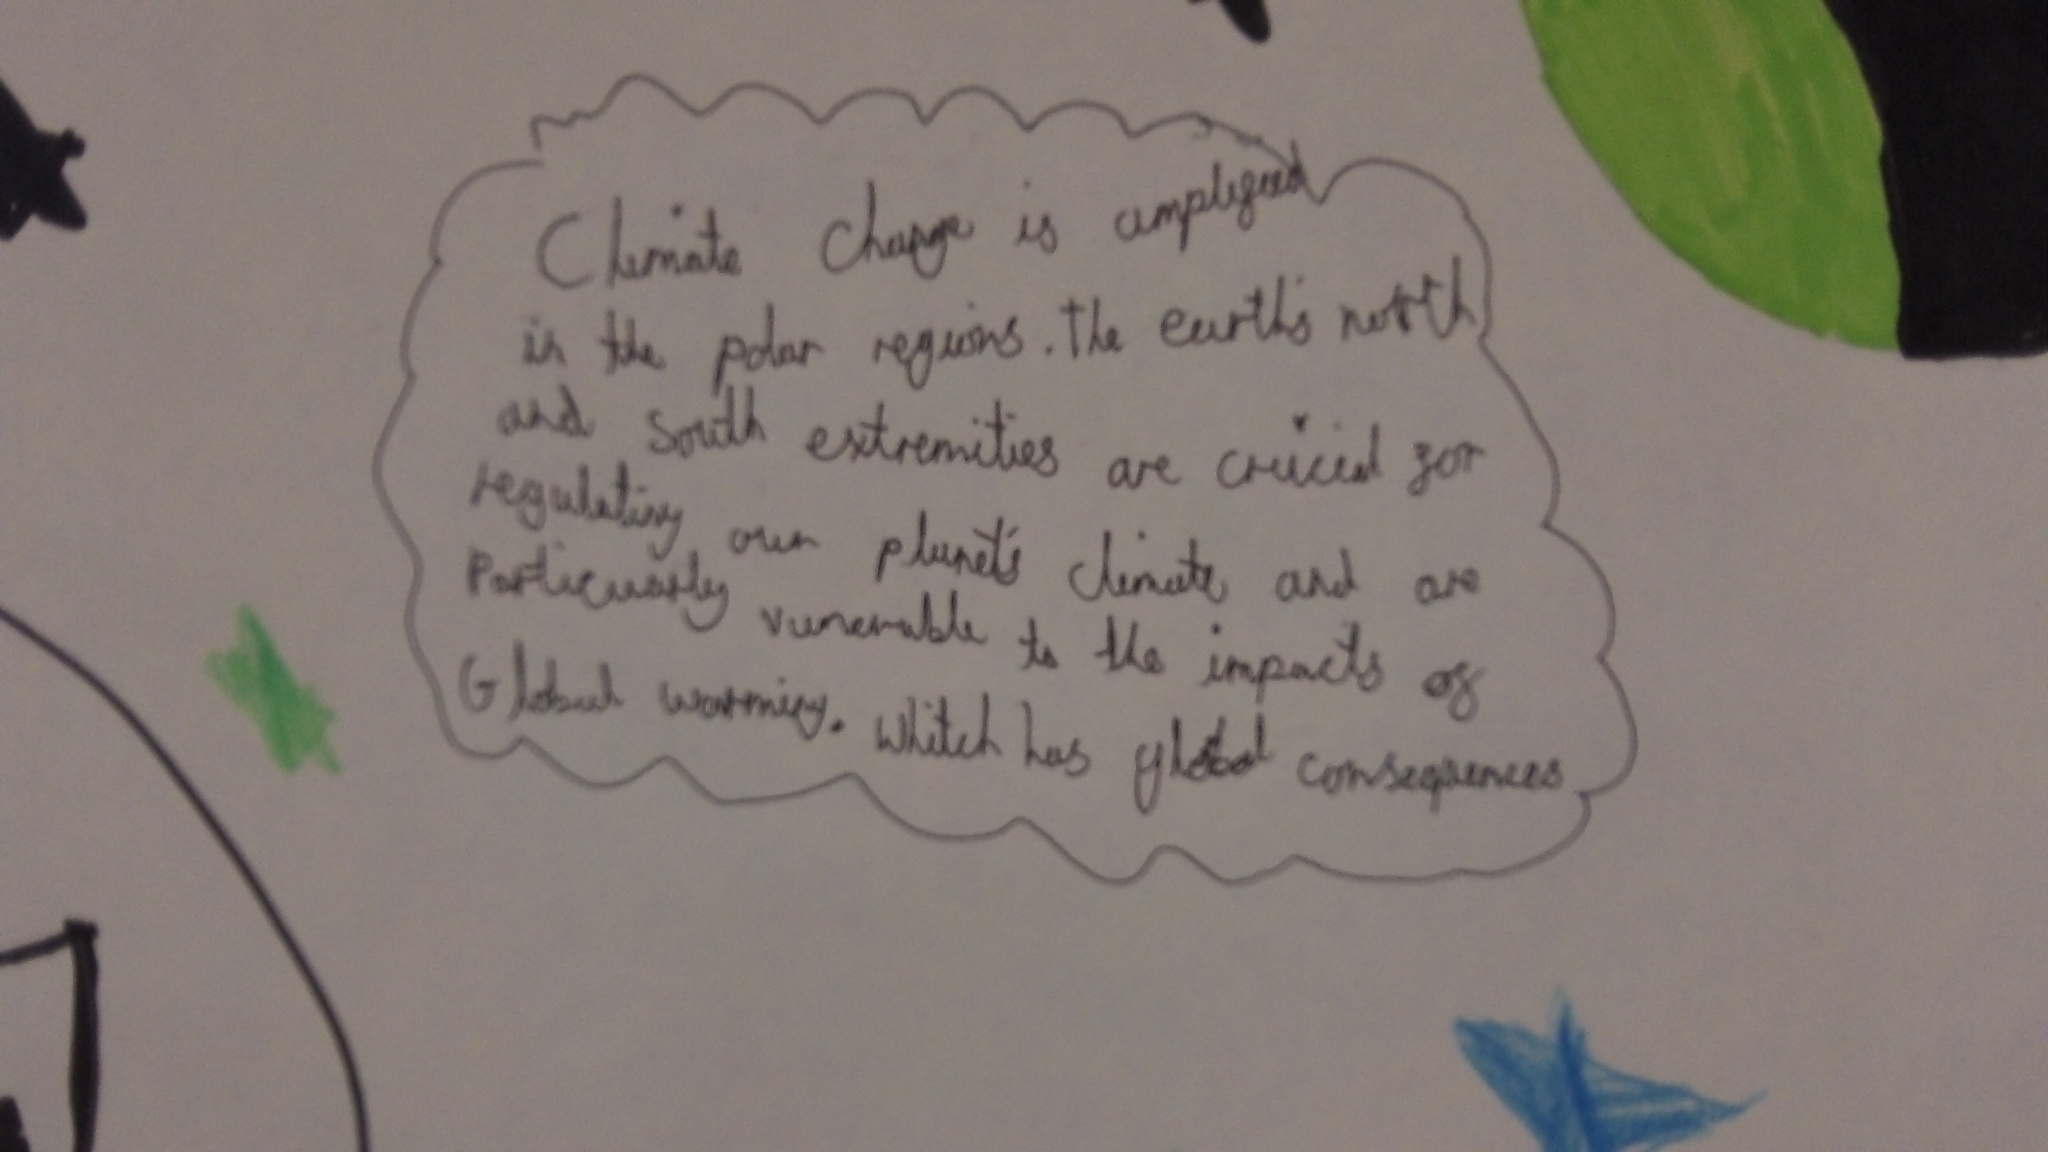 Climate change is amplified
in the polar regions. The earth's north
and south extremities are crucial for
regulating our planet's climate and are
Particuarly vunerable to the impacts of
Global warming. Whitch has global consequences